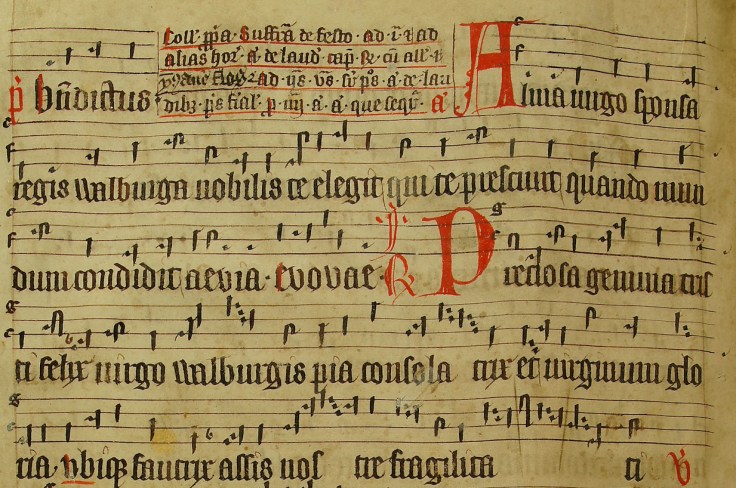 Coll' p̄pa Suffrag̃ de festo ad i R ad
alias hor' a' de laud' cap' R cū all' v'
ad
a' de lau
dibus a' a' que seqũ a'
p̄ bn̄dictus Alma uirgo sponsa
regis walburga nobilis te elegit qui te presciuit quando mun
dum condidit aevia · Evovae · j. R Preciosa gemma cris
ti felix uirgo walburgis pia consola trix et uirginum glo
ria vbiqꝫ fautrix assis nos tre fragilita ti v̄